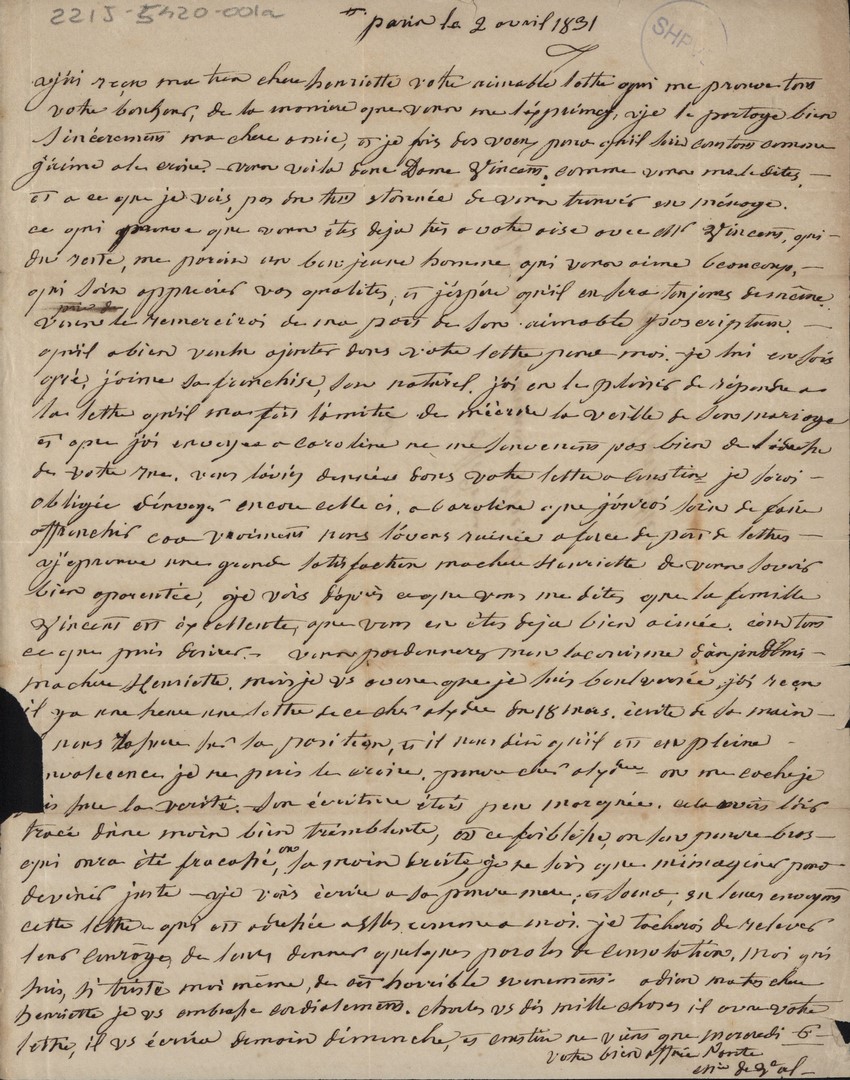 221J-5420-001a
SHP
paris le 2 avril 1831
j'ai reçu ma très chere henriette votre aimable lettre qui me prouve tous
votre bonheur, de la maniere que vous me l'éprimez, je le partage bien
sincerement ma chere amie, et je fais des voeux pour qu'il soit constant comme
j'aime a le croire. vous voila donc Dame Vincent, comme vous me le dites,
et a ce que je vois, pas du tout etonnée de vous trouver en ménage.
ce qui prouve que vous êtes deja très a votre aise avec Mr Vincent, qui
du reste, me parait un bon jeune homme qui vous aime beaucoup,
qui sait apprecier vos qualités, et j'espère qu'il en sera toujours de même.
vous le remercirez de ma part de son aimable postcriptum
qu'il a bien voulu ajouter dans votre lettre pour moi. je lui en sais
gré, j'aime sa franchise, son naturel. j'ai eu le plaisir de répondre a
la lettre qu'il ma fait l'amitié de m'écrire la veille de son mariage
et que j'ai envoyée a caroline ne me souvenant pas bien de l'adresse
de votre rue. vous l'aviez donnée dans votre lettre a je serai
obligée d'envoyer encore celle ci, a caroline que j'aurai soin de faire
affranchir car vraiment nous l'avons ruinée a force de port de lettres
j'eprouve une grande satisfaction ma chere henriette de vous savoir
bien aparentée, je vois d'après ce que vous me dites que la famille
Vincent est excellente, que vous en êtes deja bien aimée. c'est tous
ce que puis desirer. vous pardonnerez mon laconisme d'aujourd'hui
ma chere Henriette. mais je vs avoue que je suis boulversée, j'ai reçu
il y a une heure une lettre de ce cher du 18 mars. écrite de sa main
nous rassure sur sa position, et il nous dit qu'il est en pleine
nvalescence je ne puis le croire. pauvre cher on me cache je
is sure la verité. Son écriture était peu marquée. cela avait l'air
tracé d'une main bien tremblante, est ce foiblesse, ou son pauvre bras
qui aura été fracassé, ou sa main droite, je ne sais que m'imaginer pour
deviner juste je vais écrire a sa pauvre mere, et soeur, en leur envoyant
cette lettre qui est adressée a elles comme a moi. je tacherai de relever
leur courage, de leurs donner quelques paroles de consolation, moi qui
suis, si triste moi même, de cet horrible evenement. adieu ma très chere
henriette je vs embrasse cordialement. charles vs dis mille choses il aura votre
lettre, il vs écrira demain dimanche, et ne viens que mercredi 6
votre bien affée tante